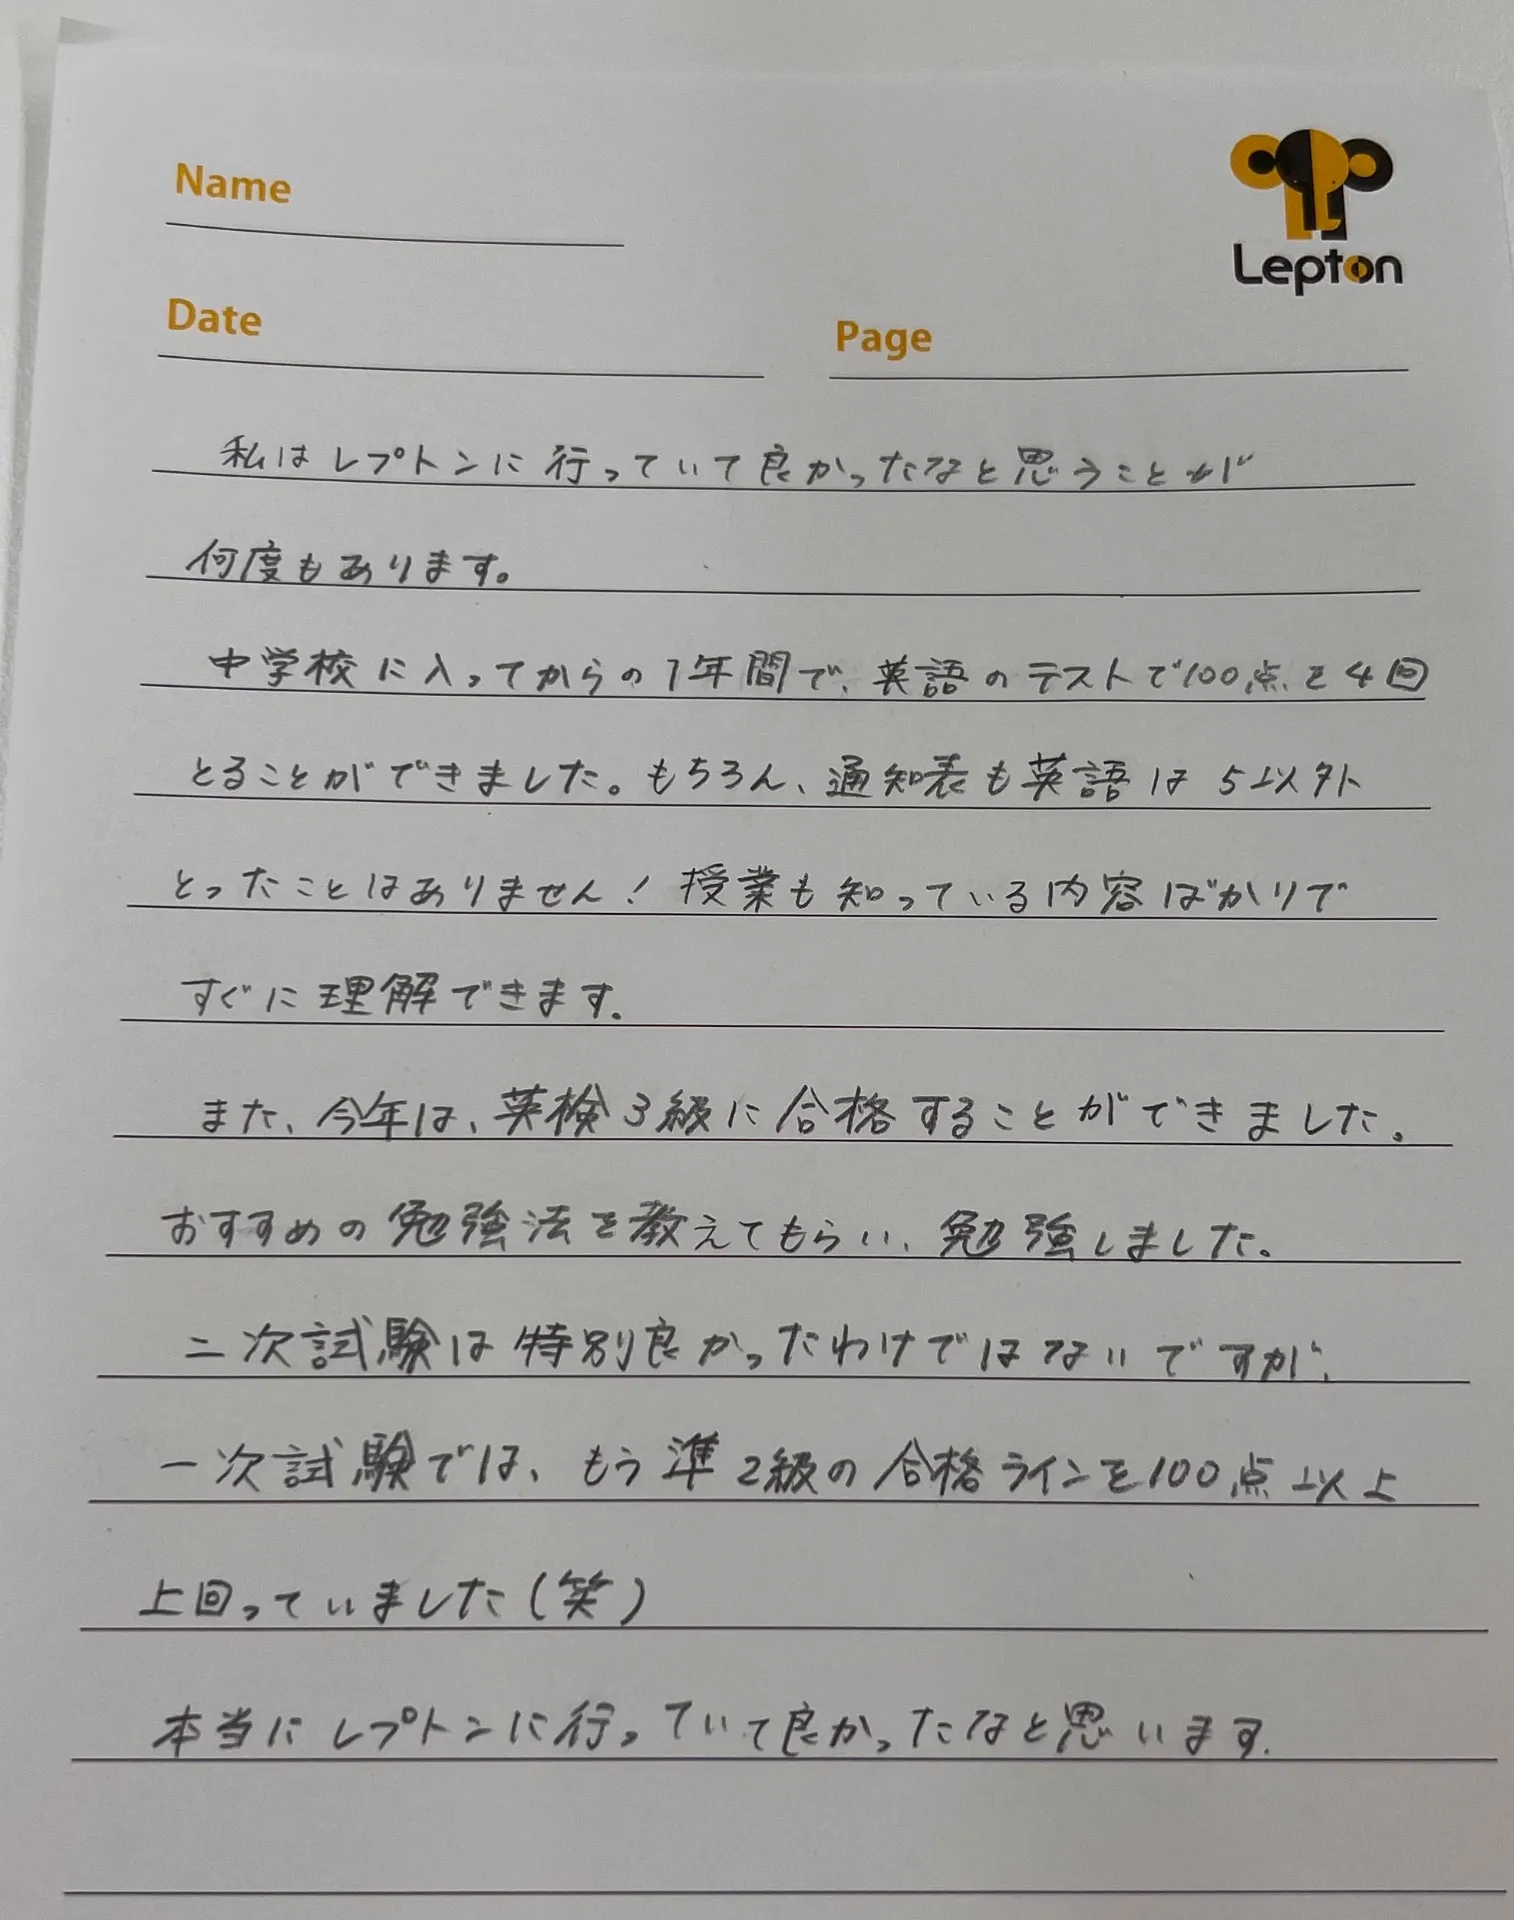 Name
Lepton
Date
Page
私はレプトンに行っていて良かったなと思うことが
何度もあります。
中学校に入ってからの1年間で、英語のテストで100点を4回
とることができました。もちろん、通知表も英語は5以外
とったことはありません！授業も知っている内容ばかりで
すぐに理解できます。
また、今年は、英検3級に合格することができました。
おすすめの勉強法を教えてもらい、勉強しました。
二次試験は特別良かったわけではないですが、
一次試験では、もう準2級の合格ラインを100点以上
上回っていました（笑）
本当にレプトンに行っていて良かったなと思います。